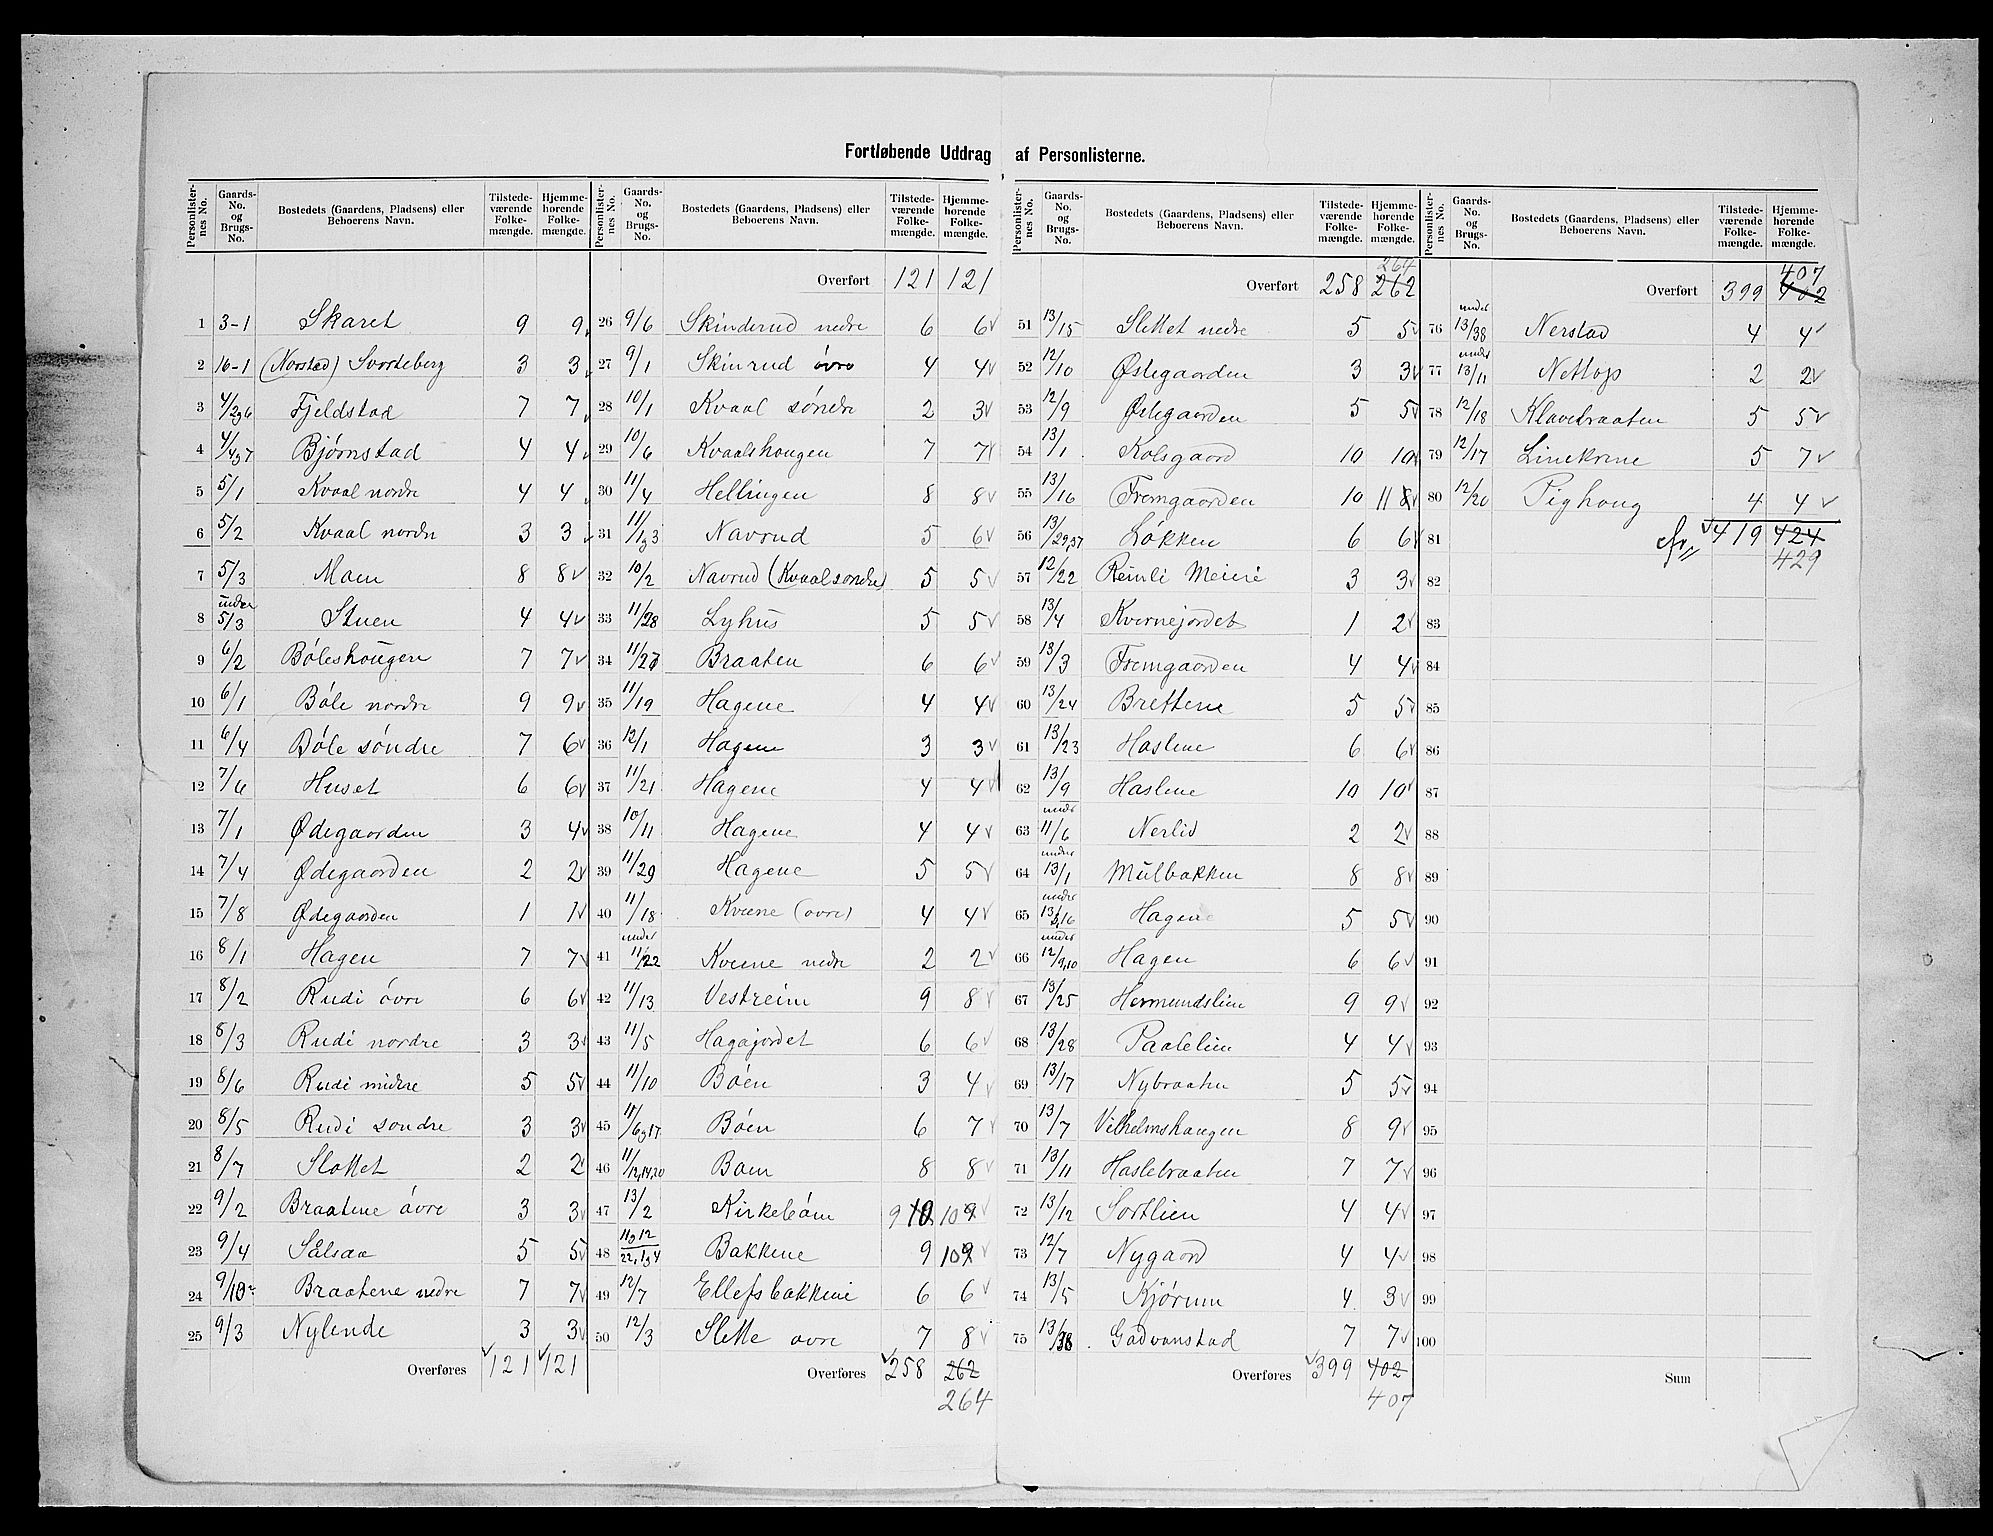 Fortløbende Uddrag af Personlisterne.
Personlister-nes No. Gaards-No. og Brugs-No. Bostedets (Gaardens, Pladsens) eller Beboerens Navn. Tilstede-værende Folke-mængde. Hjemme-hørende Folke-mængde.
1 3-1 Skaret 9 9
2 16-1 (Norstad) Svarteberg 3 3
3 4/2,6 Fjeldstad 7 7
4 4/4,7 Bjørnstad 4 4
5 5/1 Kvaal nordre 4 4
6 5/2 Kvaal nordre 3 3
7 5/3 Moen 8 8
8 under 5/3 Stuen 4 4
9 6/2 Bøleshougen 7 7
10 6/1 Bøle nordre 9 9
11 6/4 Bøle søndre 7 6
12 7/6 Huset 6 6
13 7/1 Ødegaarden 3 4
14 7/4 Ødegaarden 2 2
15 7/8 Ødegaarden 1 1
16 8/1 Hagen 7 7
17 8/2 Rudi óvre 6 6
18 8/3 Rudi nordre 3 3
19 8/6 Rudi midtre 5 5
20 8/5 Rudi sondre 3 3
21 8/7 Slottet 2 2
22 9/2 Braatene óvre 3 3
23 9/4 Sålsaa 5 5
24 9/10 Braatene nedre 7 7
25 9/3 Nylende 3 3
Overføres 121 121
Personlister-nes No. Gaards-No. og Brugs-No. Bostedets (Gaardens, Pladsens) eller Beboerens Navn. Tilstede-værende Folke-mængde. Hjemme-hørende Folke-mængde.
Overført 121 121
26 9/6 Skinderud nedre 6 6
27 9/1 Skinrud óvre 4 4
28 10/1 Kvaal søndre 2 3
29 10/6 Kvaalshougen 7 7
30 11/4 Hellingen 8 8
31 11/1,3 Navrud 5 6
32 10/2 Navrud (Kvaal søndre) 5 5
33 11/28 Lyhus 5 5
34 11/27 Braaten 6 6
35 11/19 Hagene 4 4
36 12/1 Hagene 3 3
37 11/21 Hagene 4 4
38 10/11 Hagene 4 4
39 11/29 Hagene 5 5
40 11/18 Kverne (ovre) 4 4
41 under 11/22 Kverne nedre 2 2
42 11/13 Vestreim 9 8
43 11/5 Hagajordet 6 6
44 11/10 Bóen 3 4
45 11/6,17 Bóen 6 7
46 11/12,14,20 Boen 8 8
47 13/2 Kirkebóen 9 10 10 9
48 11,12/22,1,4 Bakkene 9 10 9
49 12/7 Ellefsbakkene 6 6
50 12/3 Slette ovre 7 8
Overføres 258 262
264
Personlister-nes No. Gaards-No. og Brugs-No. Bostedets (Gaardens, Pladsens) eller Beboerens Navn. Tilstede-værende Folke-mængde. Hjemme-hørende Folke-mængde.
264
Overført 258 262
51 13/15 Slettet nedre 5 5
52 12/10 Østegaarden 3 3
53 12/9 Østegaarden 5 5
54 13/1 Kolsgaard 10 10
55 13/16 Fremgaarden 10 11 8
56 13/29,37 Løkken 6 6
57 12/22 Reinli Meieri 3 3
58 13/4 Kvernejordet 1 2
59 13/3 Fremgaarden 4 4
60 13/24 Brettene 5 5
61 13/23 Haslene 6 6
62 13/9 Haslene 10 10
63 under 11/6 Nerlid 2 2
64 under 13/1 Mülbakken 8 8
65 under 13/2,16 Hagene 5 5
66 under 12/9,10 Hagen 6 6
67 13/25 Hermundslien 9 9
68 13/28 Paalelien 4 4
69 13/17 Nybraaten 5 5
70 13/7 Vilhelmshaugen 8 9
71 13/11 Haslebraaten 7 7
72 13/12 Sortlien 4 4
73 12/7 Nygaard 4 4
74 13/5 Kjørum 4 3
75 13/38 Gadvanstad 7 7
Overføres 399 402
407
Personlister-nes No. Gaards-No. og Brugs-No. Bostedets (Gaardens, Pladsens) eller Beboerens Navn. Tilstede-værende Folke-mængde. Hjemme-hørende Folke-mængde.
407
Overført 399 402
76 under 13/38 Nerstad 4 4
77 under 13/11 Nettop 2 2
78 12/18 Klavebraaten 5 5
79 12/17 Linekrine 5 7
80 12/20 Pighoug 4 4
81 419 424
429
82
83
84
85
86
87
88
89
90
91
92
93
94
95
96
97
98
99
100
Sum